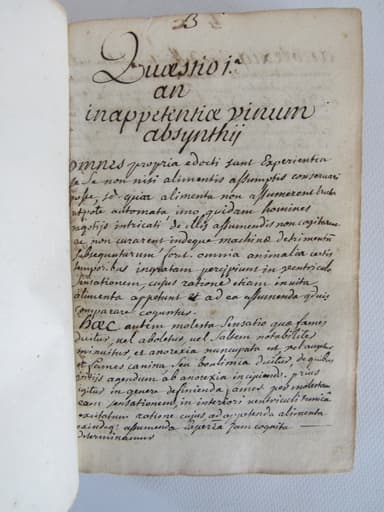 3
Quæstio 1.a
an
inappetentiæ vinum
absynthij
omnes propria edocti sunt Experientia
se se non nisi alimentis assumptis conservari
posse, sed quia alimenta non assumerent
utpote automata imo quidam homines
negotijs intricati de illis assumendis non cogitarent
ac non curarent indeque machinæ detrimentum
subsequuturum foret. omnia animalia certis
temporibus ingratam percipiunt in ventriculo
sensationem, cujus ratione etiam invita
alimenta appetunt et ad ea assumenda
comparare coguntur.
Hæc autem molesta sensatio quæ fames
dicitur, vel aboletur vel saltem notabiliter
minuitur et anorexia nuncupatur vel
et fames canina seu boulimia dicitur, de quibus
agendum ab anorexia incipiendo. prius
igitur in genere definienda fames per molestam
eam sensationem, in interiori ventriculi tunica
excitatam ratione cujus ad appetenda alimenta
eaque assumenda jam cognita
determinamur